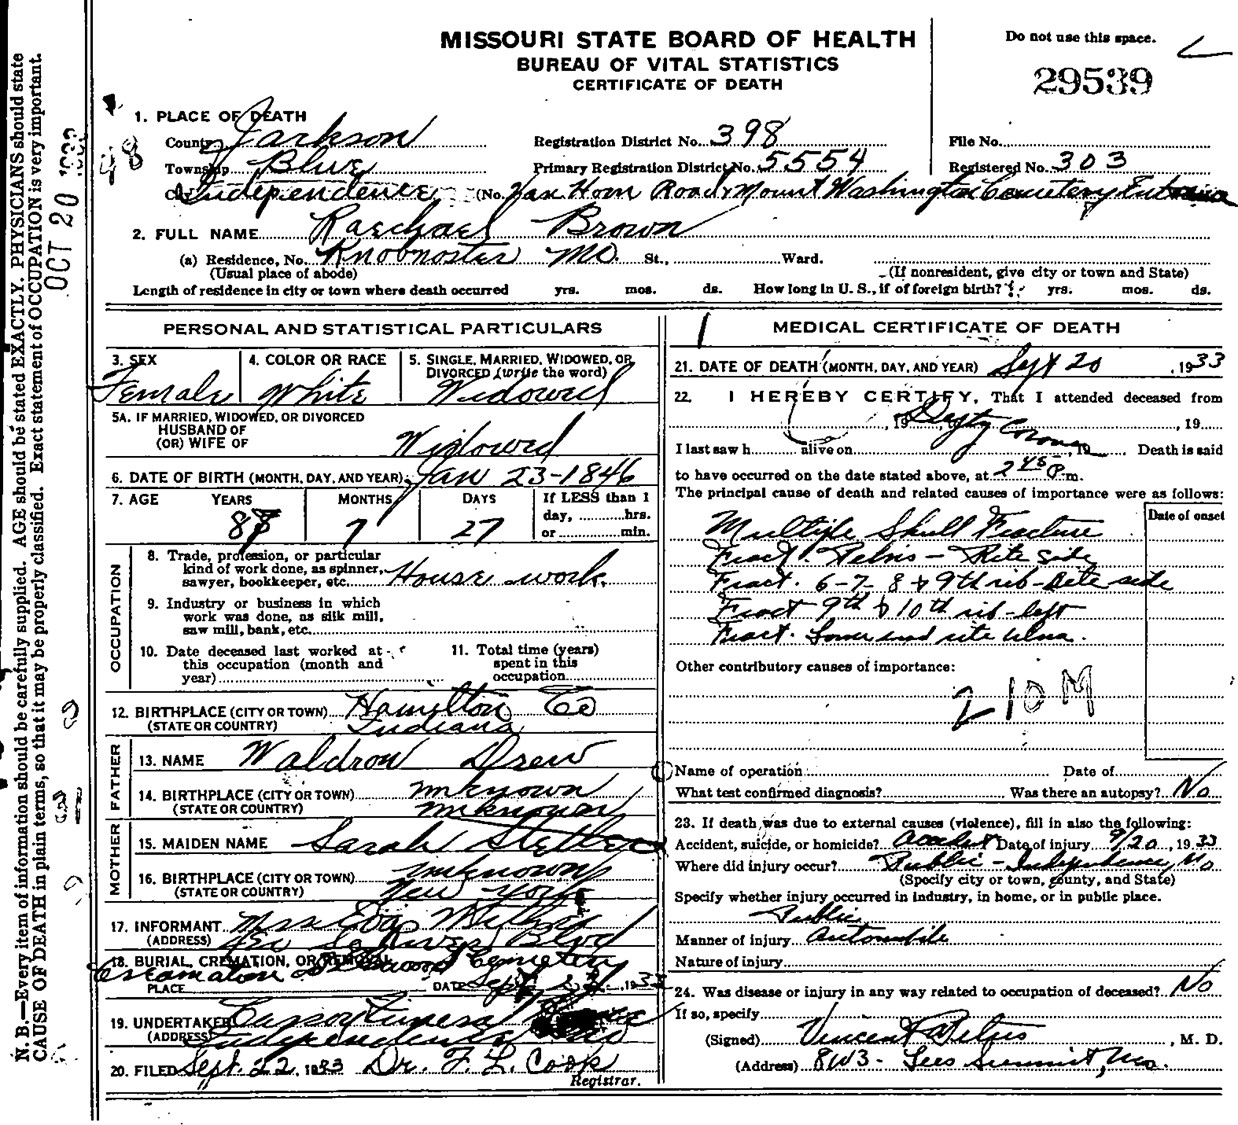 MISSOURI STATE BOARD OF HEALTH
BUREAU OF VITAL STATISTICS
CERTIFICATE OF DEATH
Do not use this space.
29539
1. PLACE OF DEATH
County Jackson Registration District No. 398 File No.
Township Blue Primary Registration District No. 5554 Registered No. 303
City Independence (No. Van Horn Road & Mount Washington Cemetery
2. FULL NAME Raechael Brown
(a) Residence, No. Knobnoster Mo. St., Ward.
(Usual place of abode) (If nonresident, give city or town and State)
Length of residence in city or town where death occurred yrs. mos. ds. How long in U. S., if of foreign birth? yrs. mos. ds.
PERSONAL AND STATISTICAL PARTICULARS
3. SEX
Female
4. COLOR OR RACE
White
5. SINGLE, MARRIED, WIDOWED, OR
DIVORCED (write the word)
Widowed
5A. IF MARRIED, WIDOWED, OR DIVORCED
HUSBAND OF
(OR) WIFE OF Widowed
6. DATE OF BIRTH (MONTH, DAY, AND YEAR) Jan 23-1846
7. AGE YEARS MONTHS DAYS If LESS than 1
day, hrs.
or min.
7 27
OCCUPATION
8. Trade, profession, or particular
kind of work done, as spinner,
sawyer, bookkeeper, etc. House work
9. Industry or business in which
work was done, as silk mill,
saw mill, bank, etc.
10. Date deceased last worked at
this occupation (month and
year)
11. Total time (years)
spent in this
occupation
12. BIRTHPLACE (CITY OR TOWN) Hamilton Co
(STATE OR COUNTRY) Indiana
FATHER
13. NAME Waldron Drew
14. BIRTHPLACE (CITY OR TOWN) unknown
(STATE OR COUNTRY) unknown
MOTHER
15. MAIDEN NAME Sarah
16. BIRTHPLACE (CITY OR TOWN) unknown
(STATE OR COUNTRY) New York
17. INFORMANT Mrs Eva
(ADDRESS) Blvd
18. BURIAL, CREMATION, OR REMOVAL
PLACE Cemetery DATE Sept 1933
19. UNDERTAKER Carson Funeral
(ADDRESS) Independence Mo
20. FILED Sept. 22, 1933 Dr. F. L. Cook
Registrar.
MEDICAL CERTIFICATE OF DEATH
21. DATE OF DEATH (MONTH, DAY, AND YEAR) Sept 20, 1933
22. I HEREBY CERTIFY, That I attended deceased from
19 Depty Coroner , 19
I last saw h alive on 19 Death is said
to have occurred on the date stated above, at 2 45 P. m.
The principal cause of death and related causes of importance were as follows:
Date of onset
Multiple Skull Fracture
Fract. Pelvis - Rite side
Fract. 6-7-8 & 9th rib - Rite side
Fract 9th & 10th rib - left
Fract. Lower end rite ulna.
Other contributory causes of importance:
210M
Name of operation Date of
What test confirmed diagnosis? Was there an autopsy? No
23. If death was due to external causes (violence), fill in also the following:
Accident, suicide, or homicide? Accident Date of injury 9/20, 1933
Where did injury occur? Public - Independence, Mo
(Specify city or town, county, and State)
Specify whether injury occurred in industry, in home, or in public place.
Public
Manner of injury Automobile
Nature of injury
24. Was disease or injury in any way related to occupation of deceased? No
If so, specify
(Signed) Vincent , M. D.
(Address) 8W3- Lees Summit, Mo.
N. B.—Every item of information should be carefully supplied. AGE should be stated EXACTLY. PHYSICIANS should state
CAUSE OF DEATH in plain terms, so that it may be properly classified. Exact statement of OCCUPATION is very important.
OCT 20 1933
48